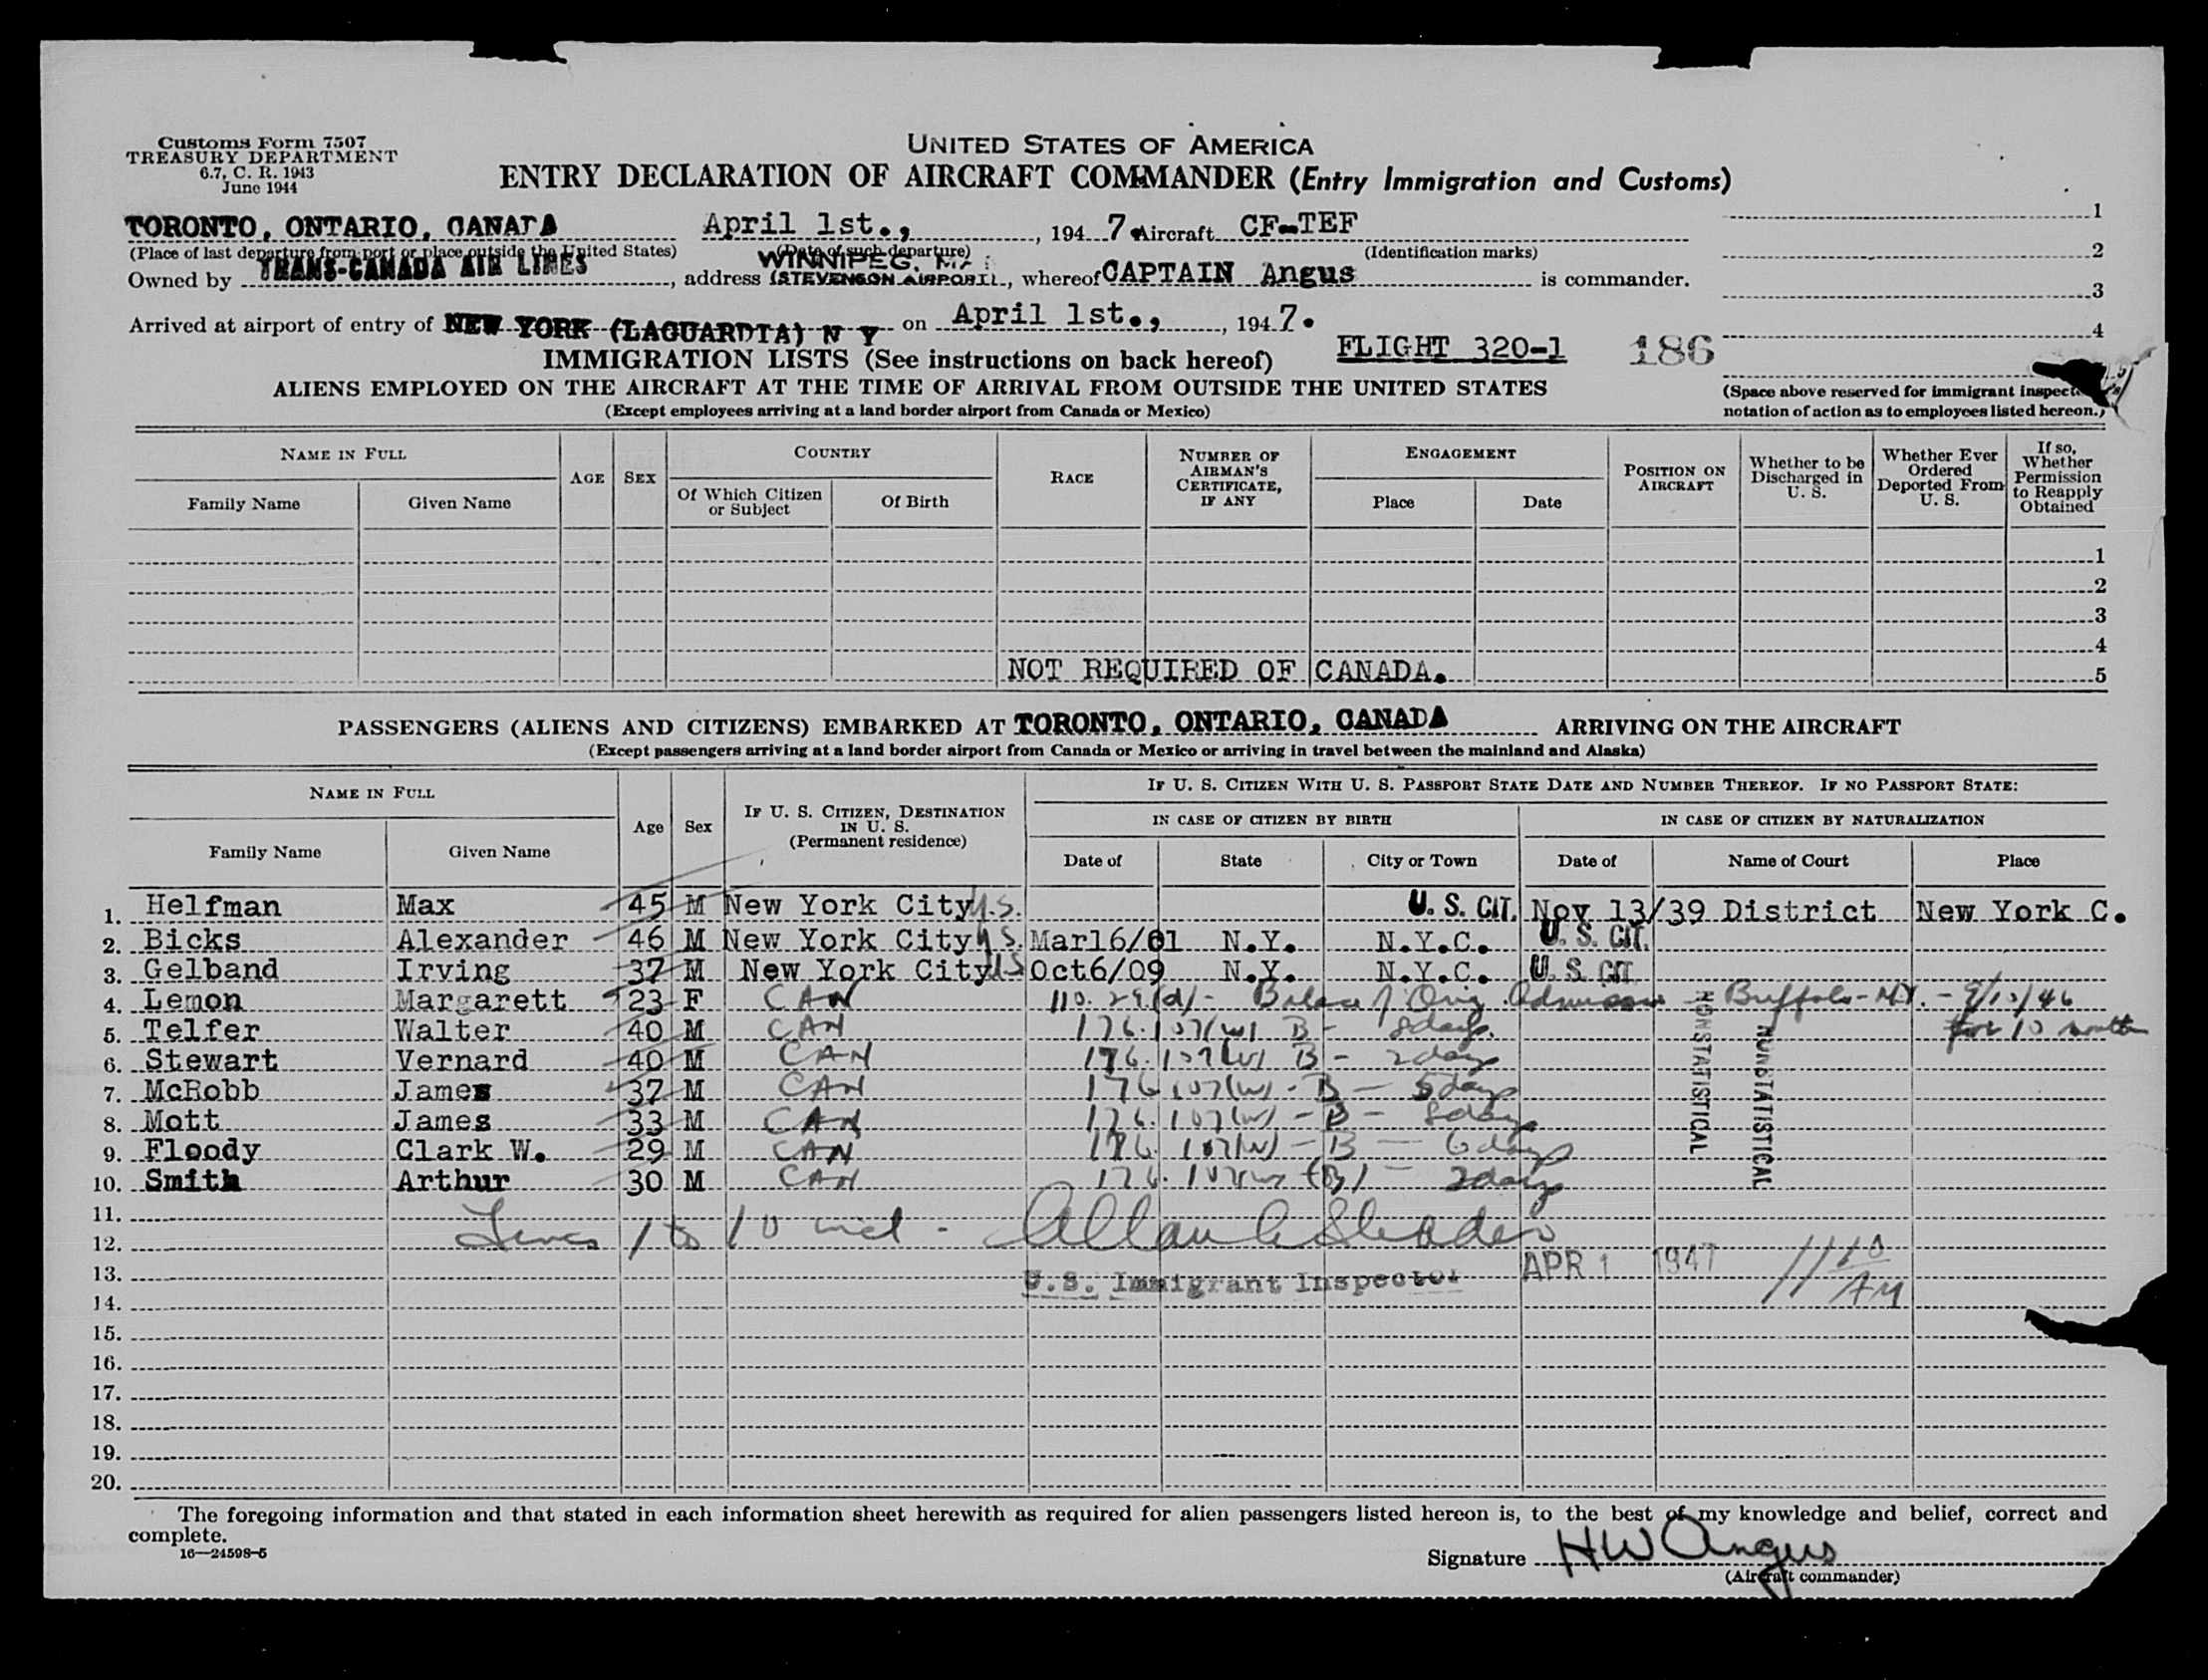 Customs Form 7507
TREASURY DEPARTMENT
6.7, C. R. 1943
June 1944
UNITED STATES OF AMERICA
ENTRY DECLARATION OF AIRCRAFT COMMANDER (Entry Immigration and Customs)
TORONTO, ONTARIO, CANADA April 1st., , 194 7. Aircraft CF-TEF 1
(Place of last departure from port or place outside the United States) (Date of such departure) (Identification marks) 2
Owned by TRANS-CANADA AIR LINES, address WINNIPEG, (STEVENSON AIRPORT), whereof CAPTAIN Angus is commander. 3
Arrived at airport of entry of NEW YORK (LAGUARDIA) N Y on April 1st., , 194 7. 4
IMMIGRATION LISTS (See instructions on back hereof) FLIGHT 320-1 186
ALIENS EMPLOYED ON THE AIRCRAFT AT THE TIME OF ARRIVAL FROM OUTSIDE THE UNITED STATES
(Except employees arriving at a land border airport from Canada or Mexico)
(Space above reserved for immigrant inspector's
notation of action as to employees listed hereon.)
NAME IN FULL AGE SEX COUNTRY RACE NUMBER OF AIRMAN'S CERTIFICATE, IF ANY ENGAGEMENT POSITION ON AIRCRAFT Whether to be Discharged in U. S. Whether Ever Ordered Deported From U. S. If so, Whether Permission to Reapply Obtained
Family Name Given Name Of Which Citizen or Subject Of Birth Place Date
1
2
3
4
NOT REQUIRED OF CANADA. 5
PASSENGERS (ALIENS AND CITIZENS) EMBARKED AT TORONTO, ONTARIO, CANADA ARRIVING ON THE AIRCRAFT
(Except passengers arriving at a land border airport from Canada or Mexico or arriving in travel between the mainland and Alaska)
NAME IN FULL Age Sex IF U. S. CITIZEN, DESTINATION IN U. S. (Permanent residence) IF U. S. CITIZEN WITH U. S. PASSPORT STATE DATE AND NUMBER THEREOF. IF NO PASSPORT STATE:
IN CASE OF CITIZEN BY BIRTH IN CASE OF CITIZEN BY NATURALIZATION
Family Name Given Name Date of State City or Town Date of Name of Court Place
1. Helfman Max 45 M New York City U.S. U. S. CIT. Nov 13/39 District New York C.
2. Bicks Alexander 46 M New York City U S. Mar16/01 N.Y. N.Y.C. U. S. CIT.
3. Gelband Irving 37 M New York City US Oct6/09 N.Y. N.Y.C. U. S. CIT
4. Lemon Margarett 23 F CAN 110. 29.(d) - Balance of Orig. Admission Buffalo - N.Y. - 9/13/46
5. Telfer Walter 40 M CAN 176.107(w) B - 8 days. for 10 months
6. Stewart Vernard 40 M CAN 176.107(w) B - 2 days
7. McRobb James 37 M CAN 176 107(w) - B - 5 days
8. Mott James 33 M CAN 176.107(w) - B - 8 days
9. Floody Clark W. 29 M CAN 176 107(w) - B - 6 days
10. Smith Arthur 30 M CAN 176.107(w) (B) - 2 days
NONSTATISTICAL
NONSTATISTICAL
11.
12. Lines 1 to 10 incl -
13. U.S. Immigrant Inspector APR 1 1947 11 10 AM
14.
15.
16.
17.
18.
19.
20.
The foregoing information and that stated in each information sheet herewith as required for alien passengers listed hereon is, to the best of my knowledge and belief, correct and
complete.
16—24598-5
Signature HW Angus
(Aircraft commander)